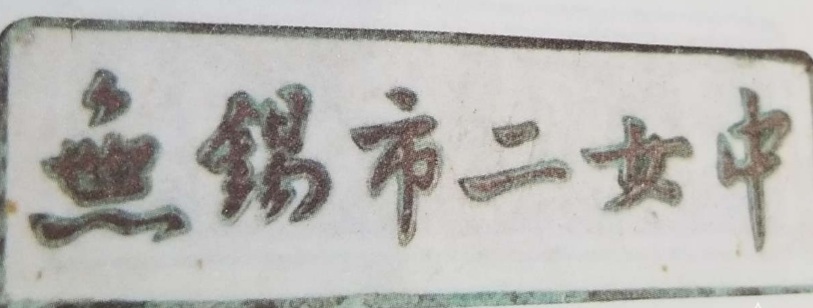 無錫市二女中